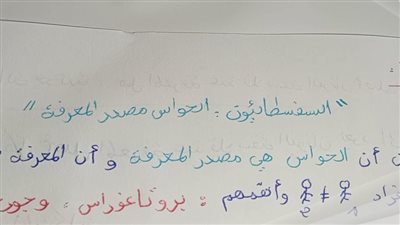 "السفسطائيون: الحواس مصدر المعرفة"
أن الحواس هي مصدر المعرفة و أن المعرفة
≠ وأهمهم: بروتاغوراس، وجور